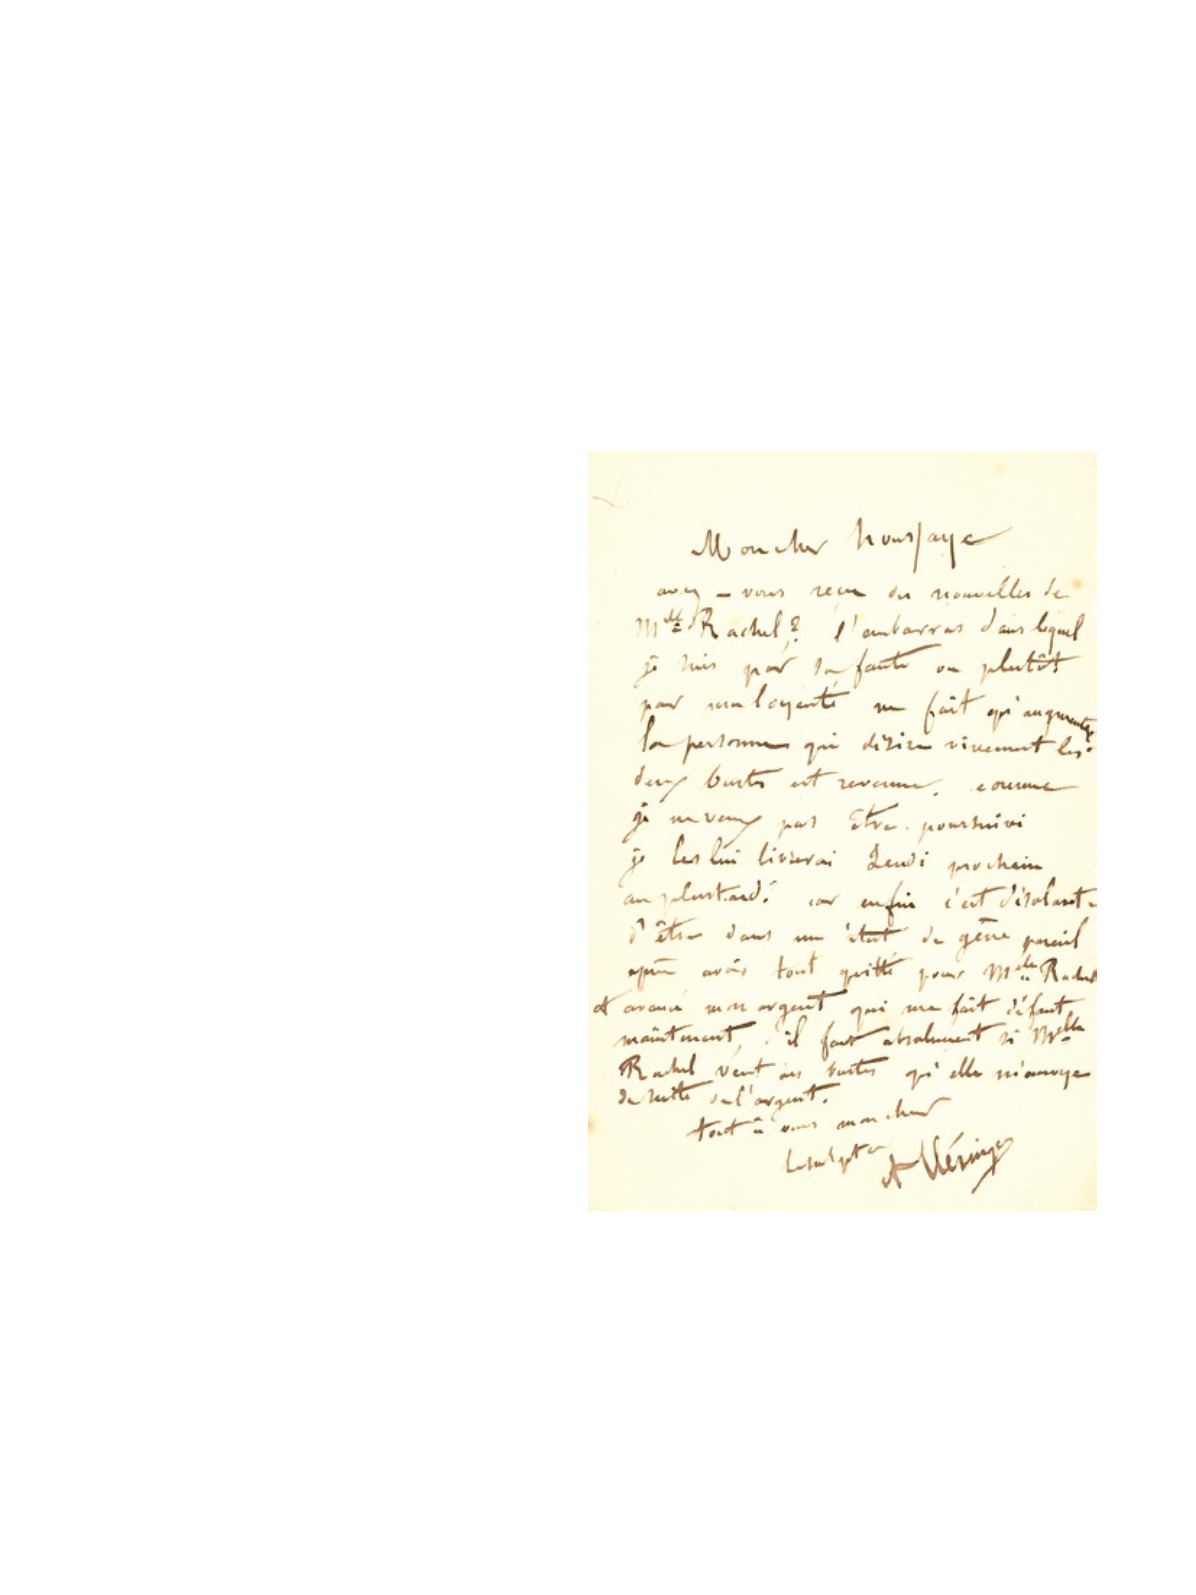 Mon cher houssaye
avez-vous reçu des nouvelles de
Melle Rachel? l'embarras dans lequel
je suis par sa faute ou plutôt
par ma loyauté ne fait qu'augmenter
la personne qui désire vivement les
deux bustes est revenue. comme
je ne veux pas être poursuivi
je les lui livrerai Jeudi prochain
au plus tard. car enfin c'est désolant
d'être dans un état de gêne pareil
après avoir tout quitté pour Melle Rachel
et avancé mon argent qui me fait défaut
maintenant, il faut absolument si Melle
Rachel veut ces bustes qu'elle m'envoye
de suite de l'argent.
tout à vous mon cher
le sculpteur A Clésinger